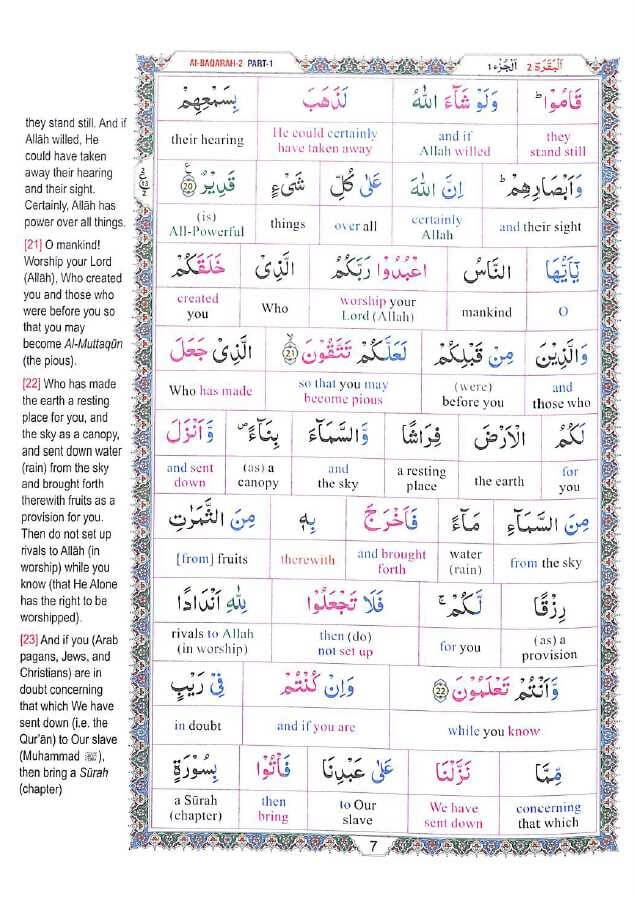 AI-BAQARAH-2 PART-1
اَلْبَقَرَة 2 اَلْجُزْء ١
they stand still. And if
Allâh willed, He
could have taken
away their hearing
and their sight.
Certainly, Allâh has
power over all things.
[21] O mankind!
Worship your Lord
(Allâh), Who created
you and those who
were before you so
that you may
become Al-Muttaqûn
(the pious).
[22] Who has made
the earth a resting
place for you, and
the sky as a canopy,
and sent down water
(rain) from the sky
and brought forth
therewith fruits as a
provision for you.
Then do not set up
rivals to Allâh (in
worship) while you
know (that He Alone
has the right to be
worshipped).
[23] And if you (Arab
pagans, Jews, and
Christians) are in
doubt concerning
that which We have
sent down (i.e. the
Qur'ân) to Our slave
(Muhammad ﷺ),
then bring a Sûrah
(chapter)
قَامُوْا ؕ وَلَوْ شَآءَ اللّٰهُ لَذَهَبَ بِسَمْعِهِمْ
they stand still and if Allah willed He could certainly have taken away their hearing
وَاَبْصَارِهِمْ ؕ اِنَّ اللّٰهَ عَلٰى كُلِّ شَىْءٍ قَدِيْرٌ 20
and their sight certainly Allah over all things (is) All-Powerful
يٰٓاَيُّهَا النَّاسُ اعْبُدُوْا رَبَّكُمُ الَّذِىْ خَلَقَكُمْ
O mankind worship your Lord (Allah) Who created you
وَالَّذِيْنَ مِنْ قَبْلِكُمْ لَعَلَّكُمْ تَتَّقُوْنَ 21 الَّذِىْ جَعَلَ
and those who (were) before you so that you may become pious Who has made
لَكُمُ الْاَرْضَ فِرَاشًا وَّالسَّمَآءَ بِنَآءً وَّاَنْزَلَ
for you the earth a resting place and the sky (as) a canopy and sent down
مِنَ السَّمَآءِ مَآءً فَاَخْرَجَ بِهٖ مِنَ الثَّمَرٰتِ
from the sky water (rain) and brought forth therewith [from] fruits
رِزْقًا لَّكُمْ ۚ فَلَا تَجْعَلُوْا لِلّٰهِ اَنْدَادًا
(as) a provision for you then (do) not set up rivals to Allah (in worship)
وَّاَنْتُمْ تَعْلَمُوْنَ 22 وَاِنْ كُنْتُمْ فِىْ رَيْبٍ
while you know and if you are in doubt
مِّمَّا نَزَّلْنَا عَلٰى عَبْدِنَا فَاْتُوْا بِسُوْرَةٍ
concerning that which We have sent down to Our slave then bring a Sûrah (chapter)
7